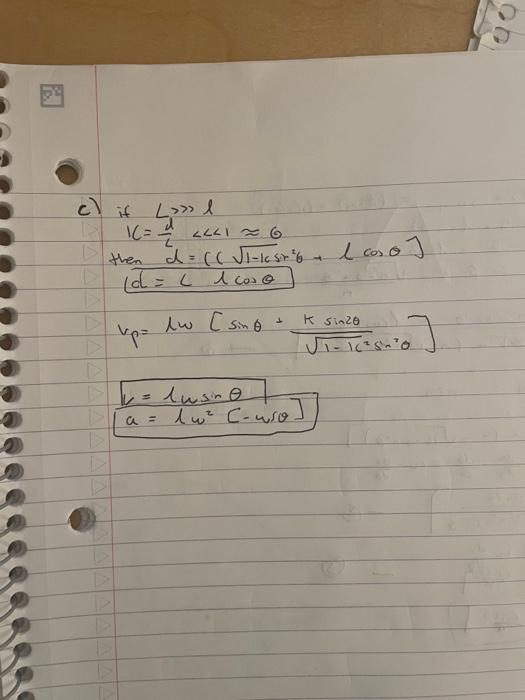 c) if L>>> l
K = l/L <<<1 ≈ 0
then d = [L √1-k sin²θ + l cos θ]
d = L l cos θ
Vp = lω [sin θ + K sin2θ / √1-K² sin²θ]
v = lω sin θ
a = lω² [-cosθ]